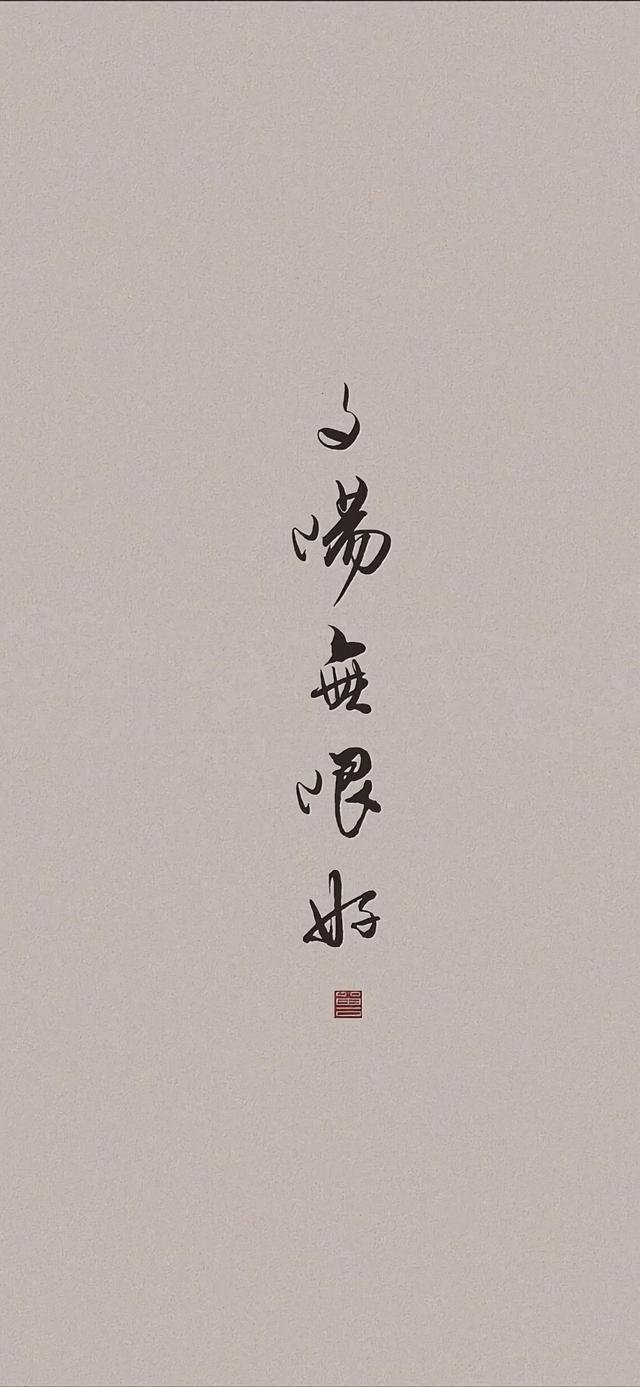 夕陽無限好